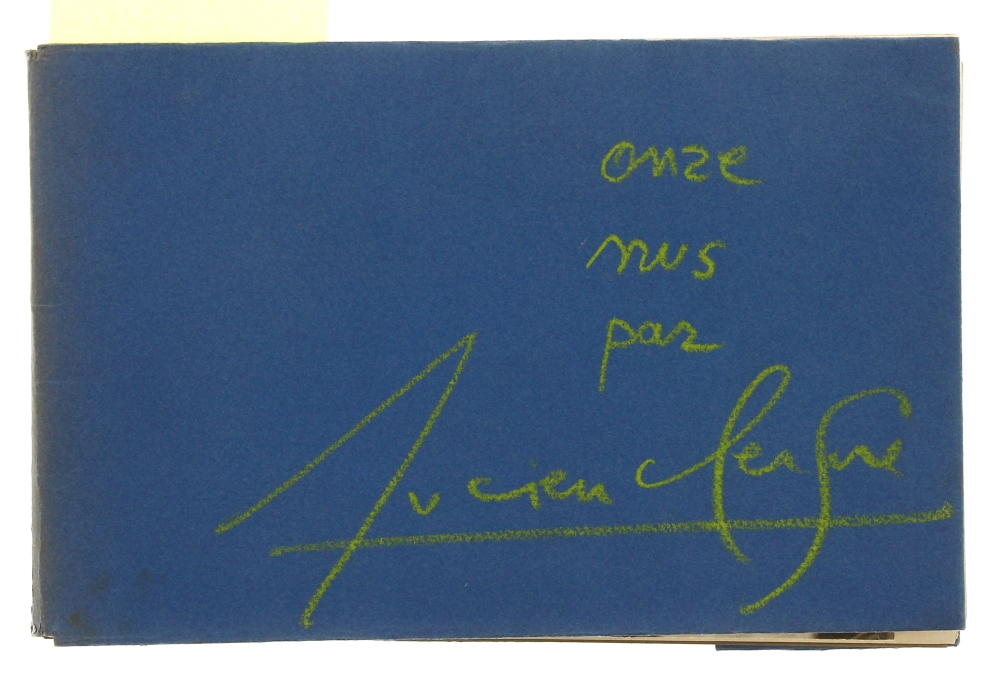 onze
nus
par
Lucien Clergue